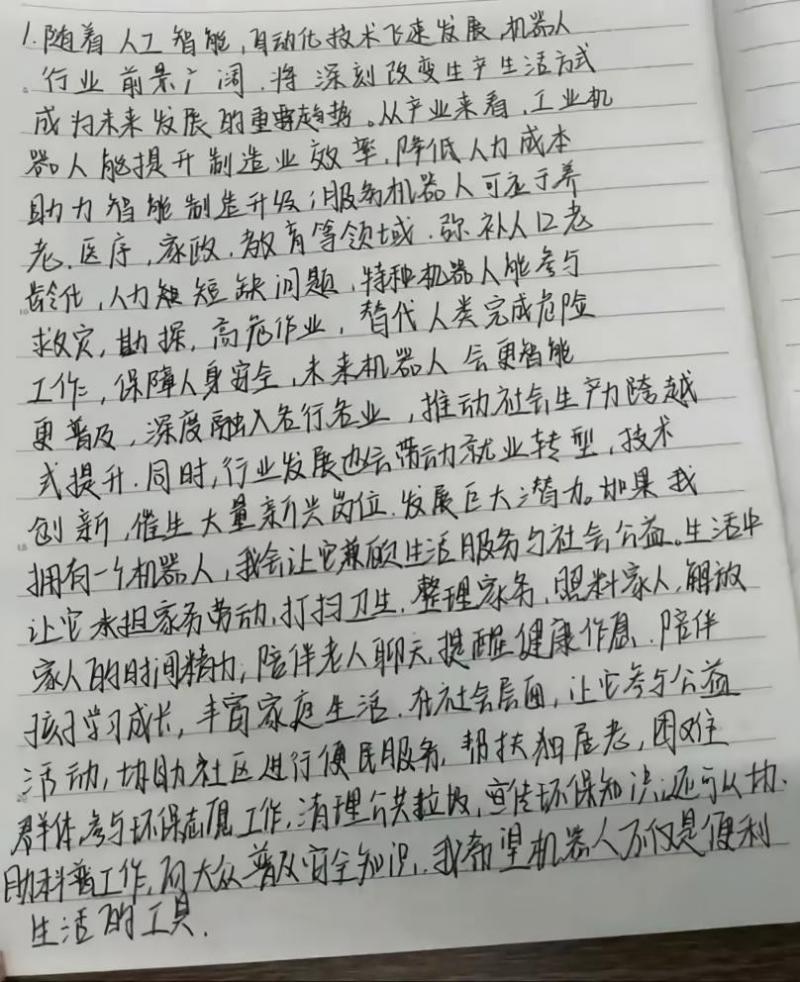 1.随着人工智能,自动化技术飞速发展,机器人
行业前景广阔.将深刻改变生产生活方式
成为未来发展的重要趋势。从产业来看,工业机
器人能提升制造业效率,降低人力成本
助力智能制造升级;服务机器人可应于养
老.医疗,家政.教育等领域.弥补人口老
龄化,人力短缺问题,特种机器人能参与
救灾,勘探,高危作业,替代人类完成危险
工作,保障人身安全,未来机器人会更智能
更普及,深度融入各行各业,推动社会生产力跨越
式提升.同时,行业发展也会带动就业转型,技术
创新,催生大量新兴岗位.发展巨大潜力。如果我
拥有一个机器人,我会让它兼顾生活服务与社会公益。生活中
让它承担家务劳动,打扫卫生.整理家务,照料家人,解放
家人的时间精力,陪伴老人聊天,提醒健康作息.陪伴
孩子学习成长,丰富家庭生活.在社会层面,让它参与公益
活动,协助社区进行便民服务,帮扶独居老,困难
群体,参与环保志愿工作,清理公共垃圾,宣传环保知识;还可以协
助科普工作,向大众普及安全知识,我希望机器人不仅是便利
生活的工具.